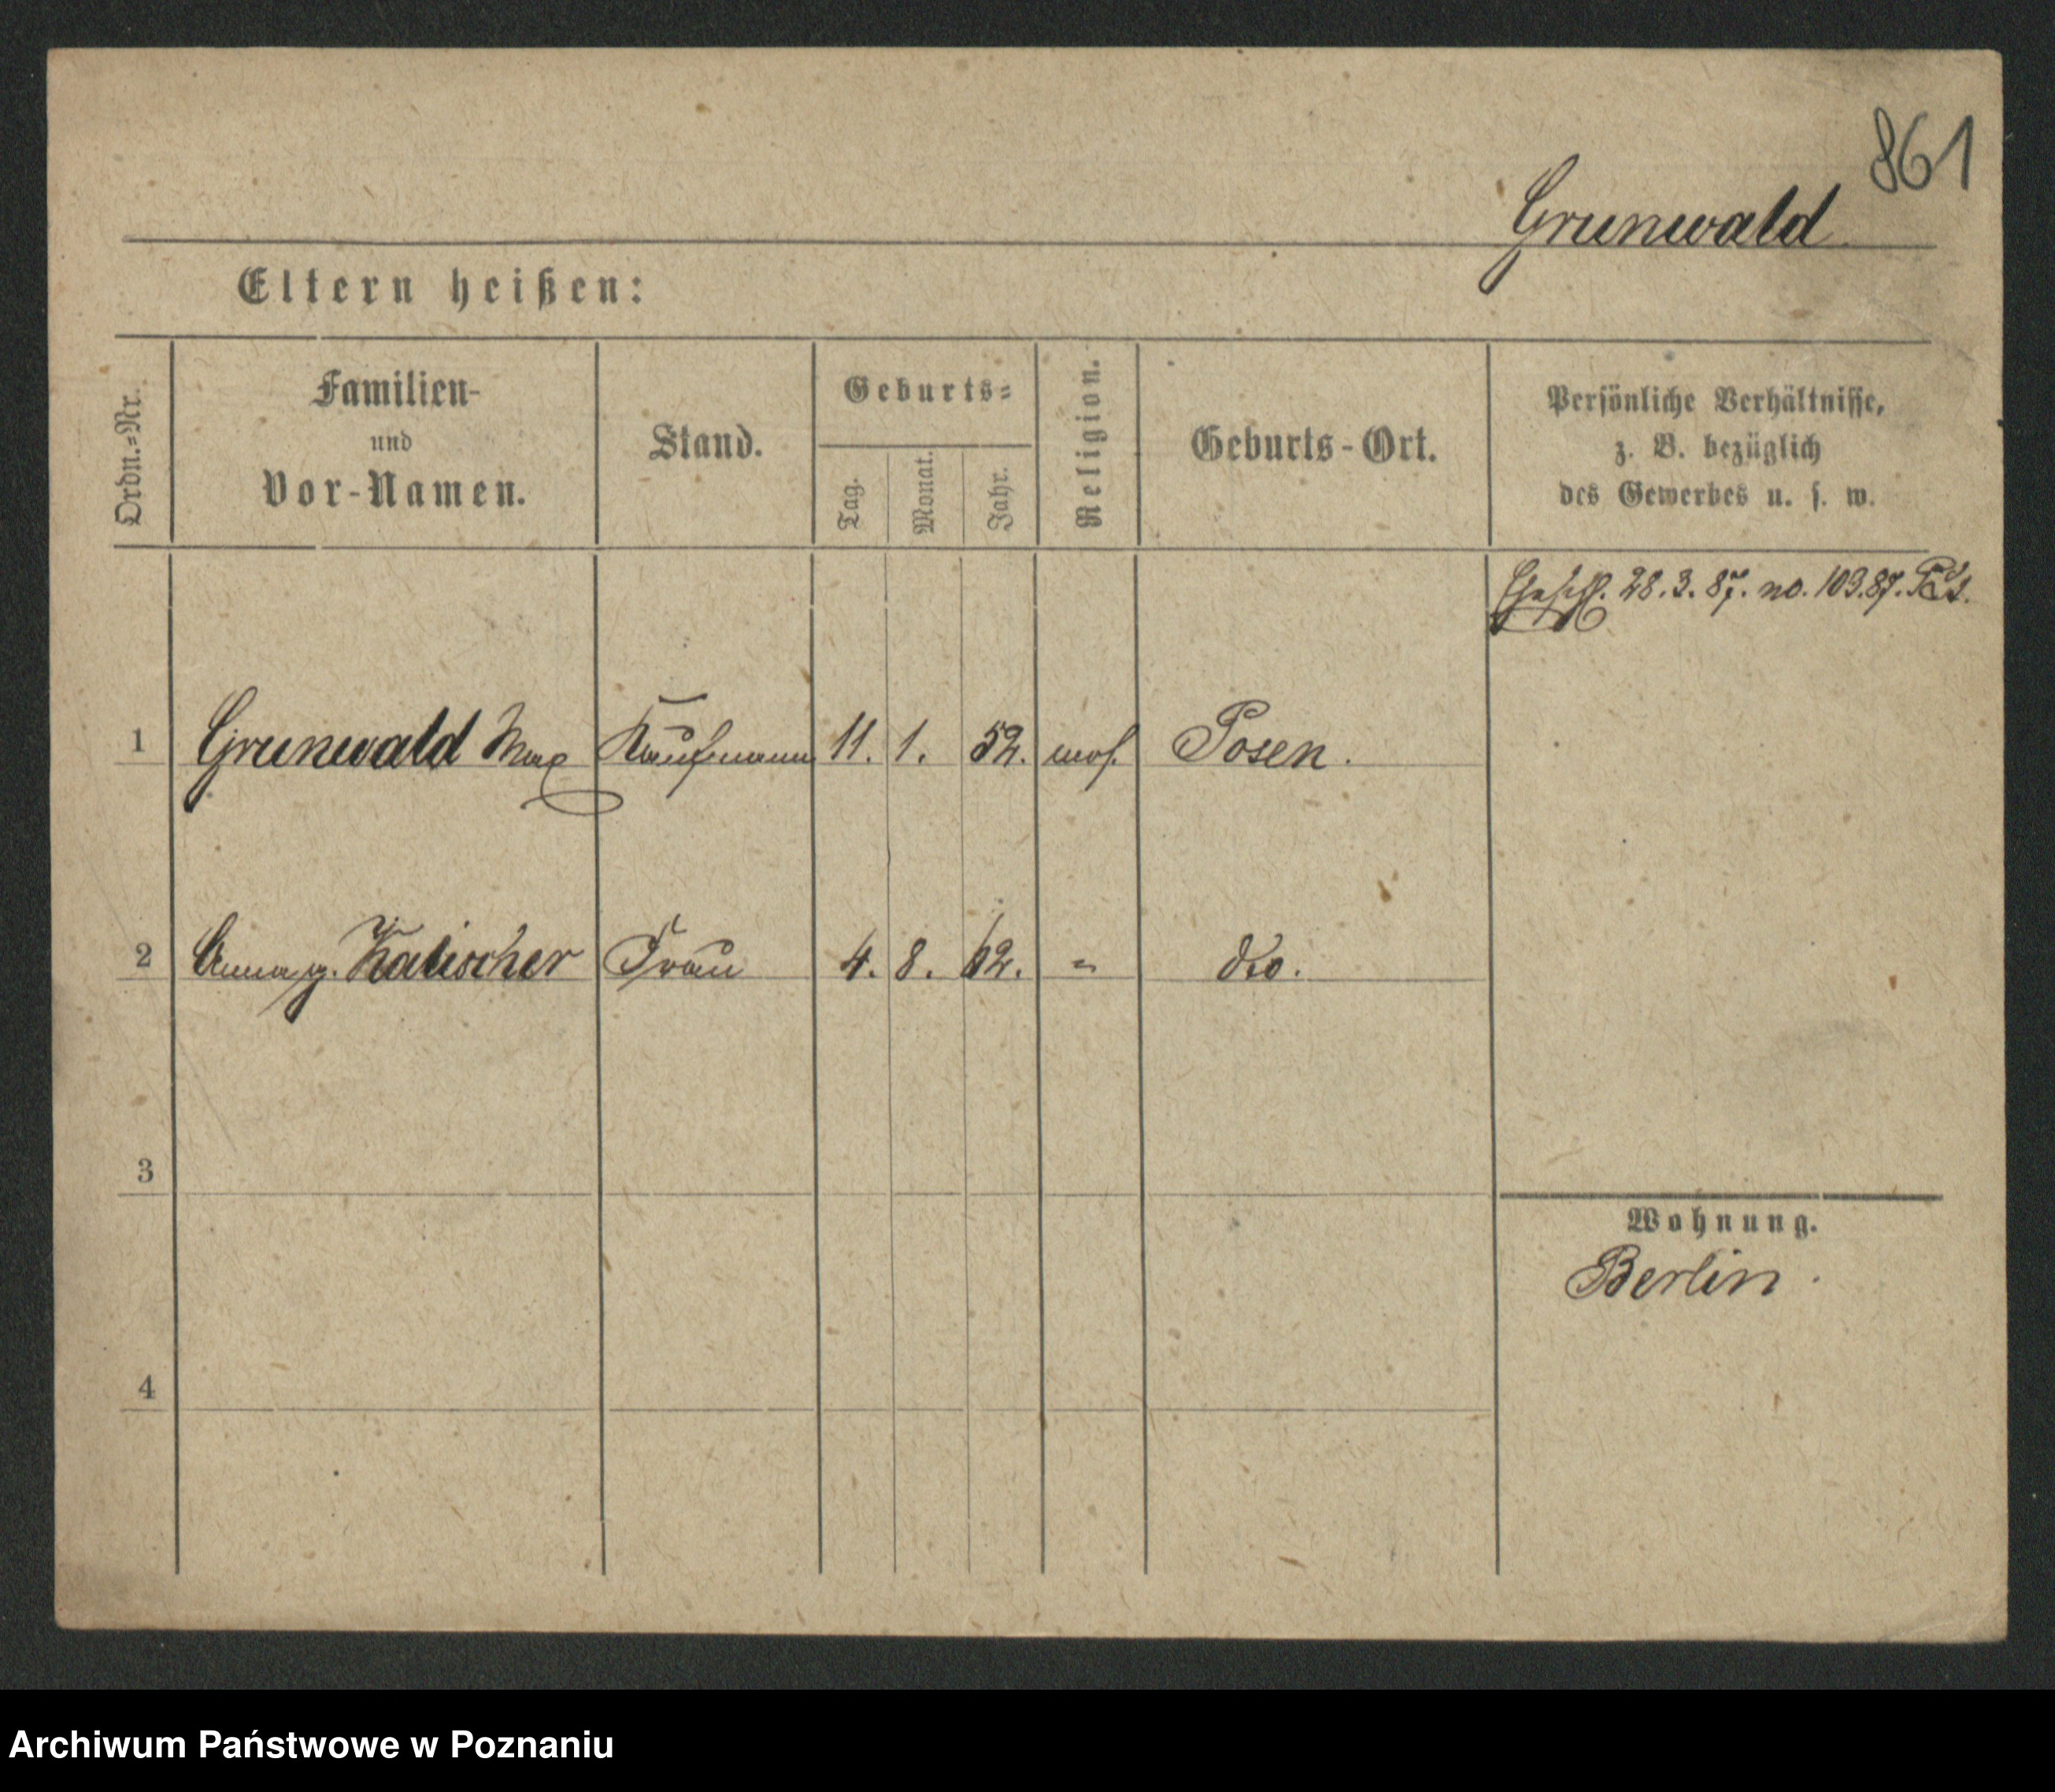 861
Grunwald
Eltern heißen:
Ordn.-Nr.
Familien- und Vor-Namen.
Stand.
Geburts-
Tag.
Monat.
Jahr.
Religion.
Geburts-Ort.
Persönliche Verhältnisse,
z. B. bezüglich
des Gewerbes u. s. w.
28.3.87. no. 103.87.
1 Grunwald Max Kaufmann 11. 1. 52. mos. Posen.
2 Anna g. Kalischer Frau 4. 8. 62. " dto.
3
Wohnung.
Berlin.
4
Archiwum Państwowe w Poznaniu